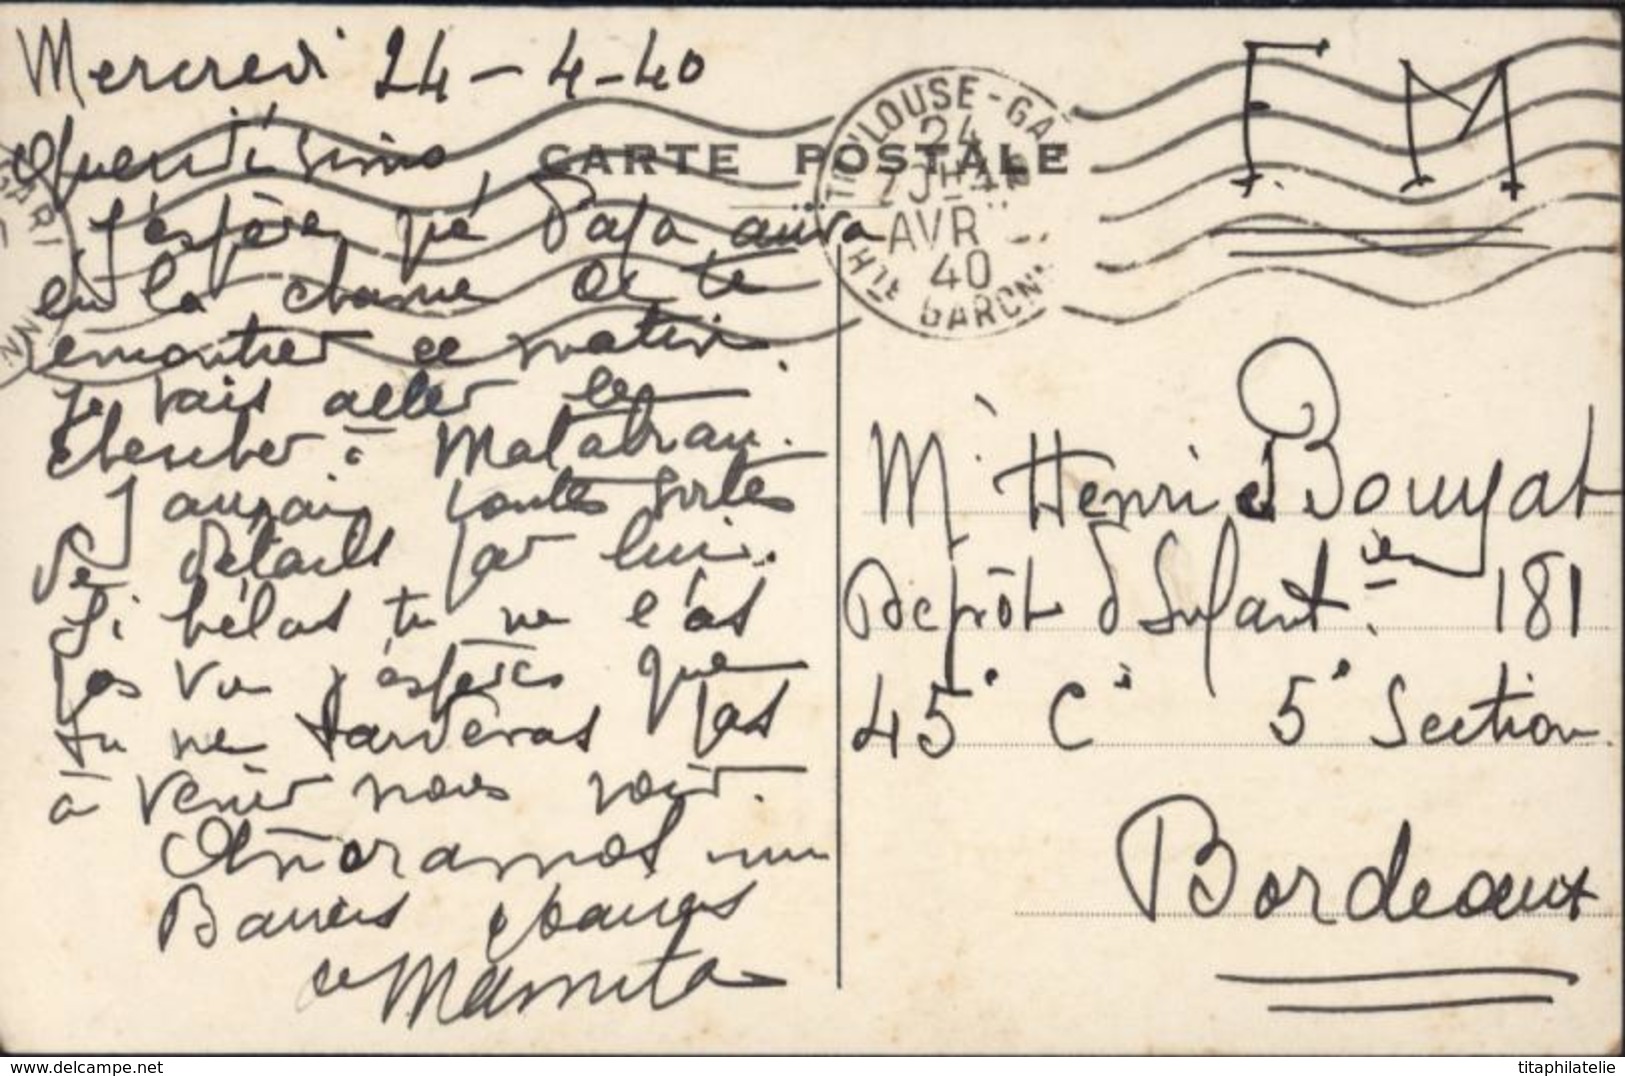 Mercredi 24-4-40
Queridisimo
J'espère que Papa aura
eu la chance de te
rencontrer ce matin.
Je vais aller le
chercher à Matabiau.
J'aurai toutes sortes
de détails par lui.
Si hélas tu ne l'as
pas vu j'espère que
tu ne tarderas pas
à venir nous voir.
Añoramos
Baisers
de Mamita
CARTE POSTALE
F. M.
TOULOUSE-GA
24
AVR
40
Hte GARONNE
Mr Henri Bouyat
Dépôt d'Infanterie 181
45e Cie 5e Section
Bordeaux
www.delcampe.net
titaphilatelie